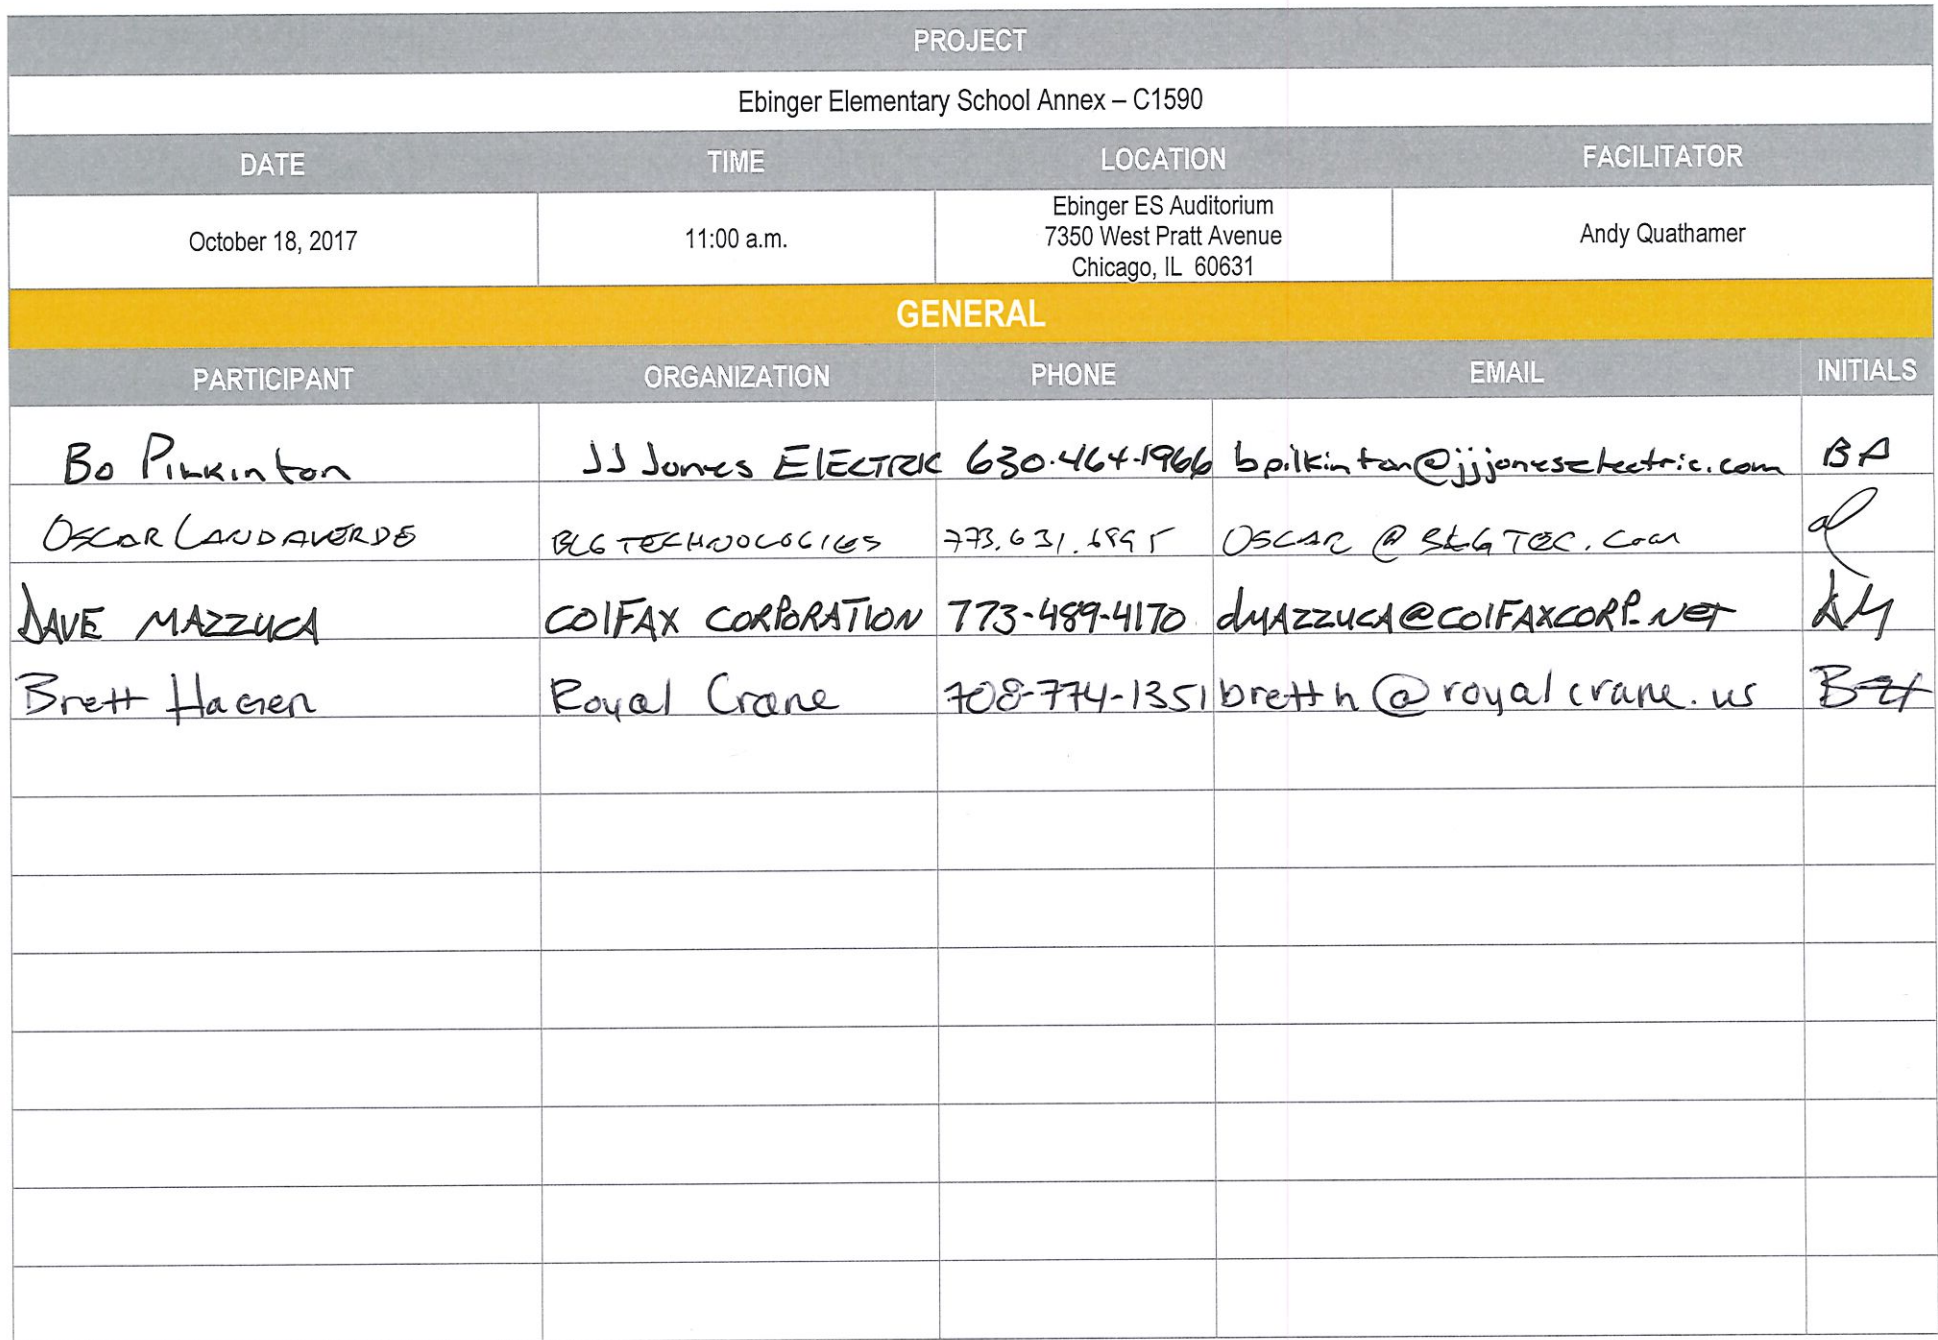 PROJECT
Ebinger Elementary School Annex – C1590
DATE TIME LOCATION FACILITATOR
October 18, 2017 11:00 a.m. Ebinger ES Auditorium
7350 West Pratt Avenue
Chicago, IL 60631 Andy Quathamer
GENERAL
PARTICIPANT ORGANIZATION PHONE EMAIL INITIALS
Bo JJ Jones ElECTRIC 630.464.1966 BP
OSCAR LANDAVERDE TECHNOLOGIES
DAVE MAZZUCA COlFAX CORPORATION 773-489-4170 dMAZZUCA@COlFAXCORP.NET DM
Brett Hagen Royal Crane 708-774-1351 bretth@royalcrane.us